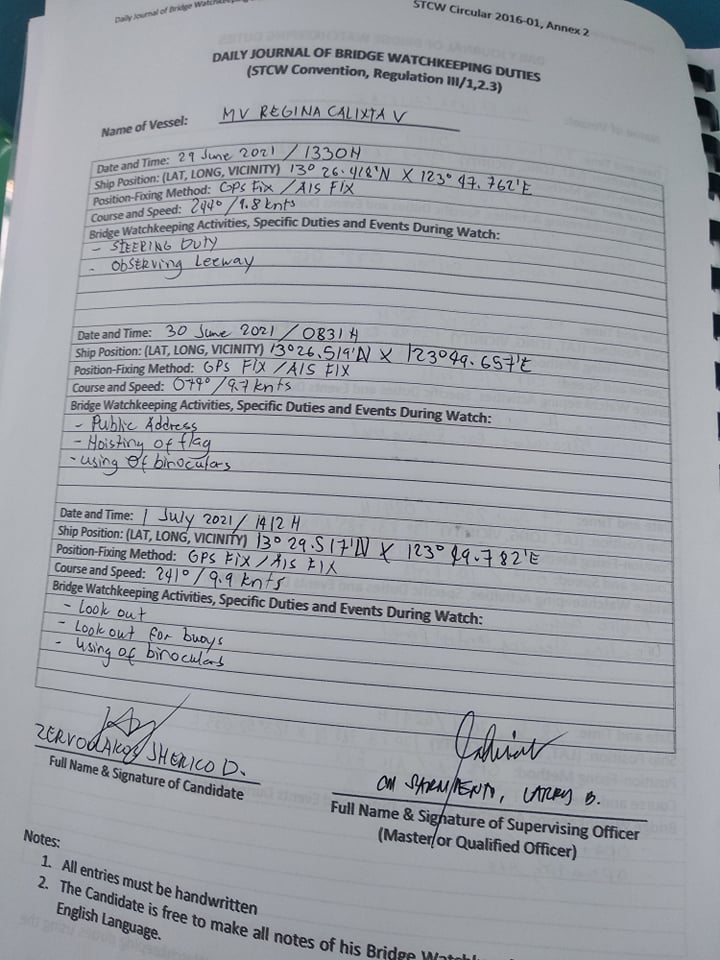 Daily Journal of Bridge
STCW Circular 2016-01, Annex 2
DAILY JOURNAL OF BRIDGE WATCHKEEPING DUTIES
(STCW Convention, Regulation III/1,2.3)
Name of Vessel: MV REGINA CALIXTA V
Date and Time: 29 June 2021 / 1330H
Ship Position: (LAT, LONG, VICINITY) 13° 26.418'N X 123° 47.762'E
Position-Fixing Method: GPS Fix / AIS FIX
Course and Speed: 244° / 9.8 knts
Bridge Watchkeeping Activities, Specific Duties and Events During Watch:
- STEERING DUTY
- OBSERVING Leeway
Date and Time: 30 June 2021 / 0831 H
Ship Position: (LAT, LONG, VICINITY) 13°26.519'N X 123°49.657'E
Position-Fixing Method: GPS FIX / AIS FIX
Course and Speed: 079° / 9.7 knts
Bridge Watchkeeping Activities, Specific Duties and Events During Watch:
- Public Address
- Hoisting of flag
- using of binoculars
Date and Time: 1 July 2021 / 1412 H
Ship Position: (LAT, LONG, VICINITY) 13° 29.517'N X 123° 49.782'E
Position-Fixing Method: GPS Fix / AIS FIX
Course and Speed: 241° / 9.9 knts
Bridge Watchkeeping Activities, Specific Duties and Events During Watch:
- Look out
- Look out for buoys
- Using of binoculars
ZERVOULAKOS, SHERICO D.
Full Name & Signature of Candidate
CM SARMIENTO, LARRY B.
Full Name & Signature of Supervising Officer
(Master or Qualified Officer)
Notes:
1. All entries must be handwritten
2. The Candidate is free to make all notes of his Bridge
English Language.